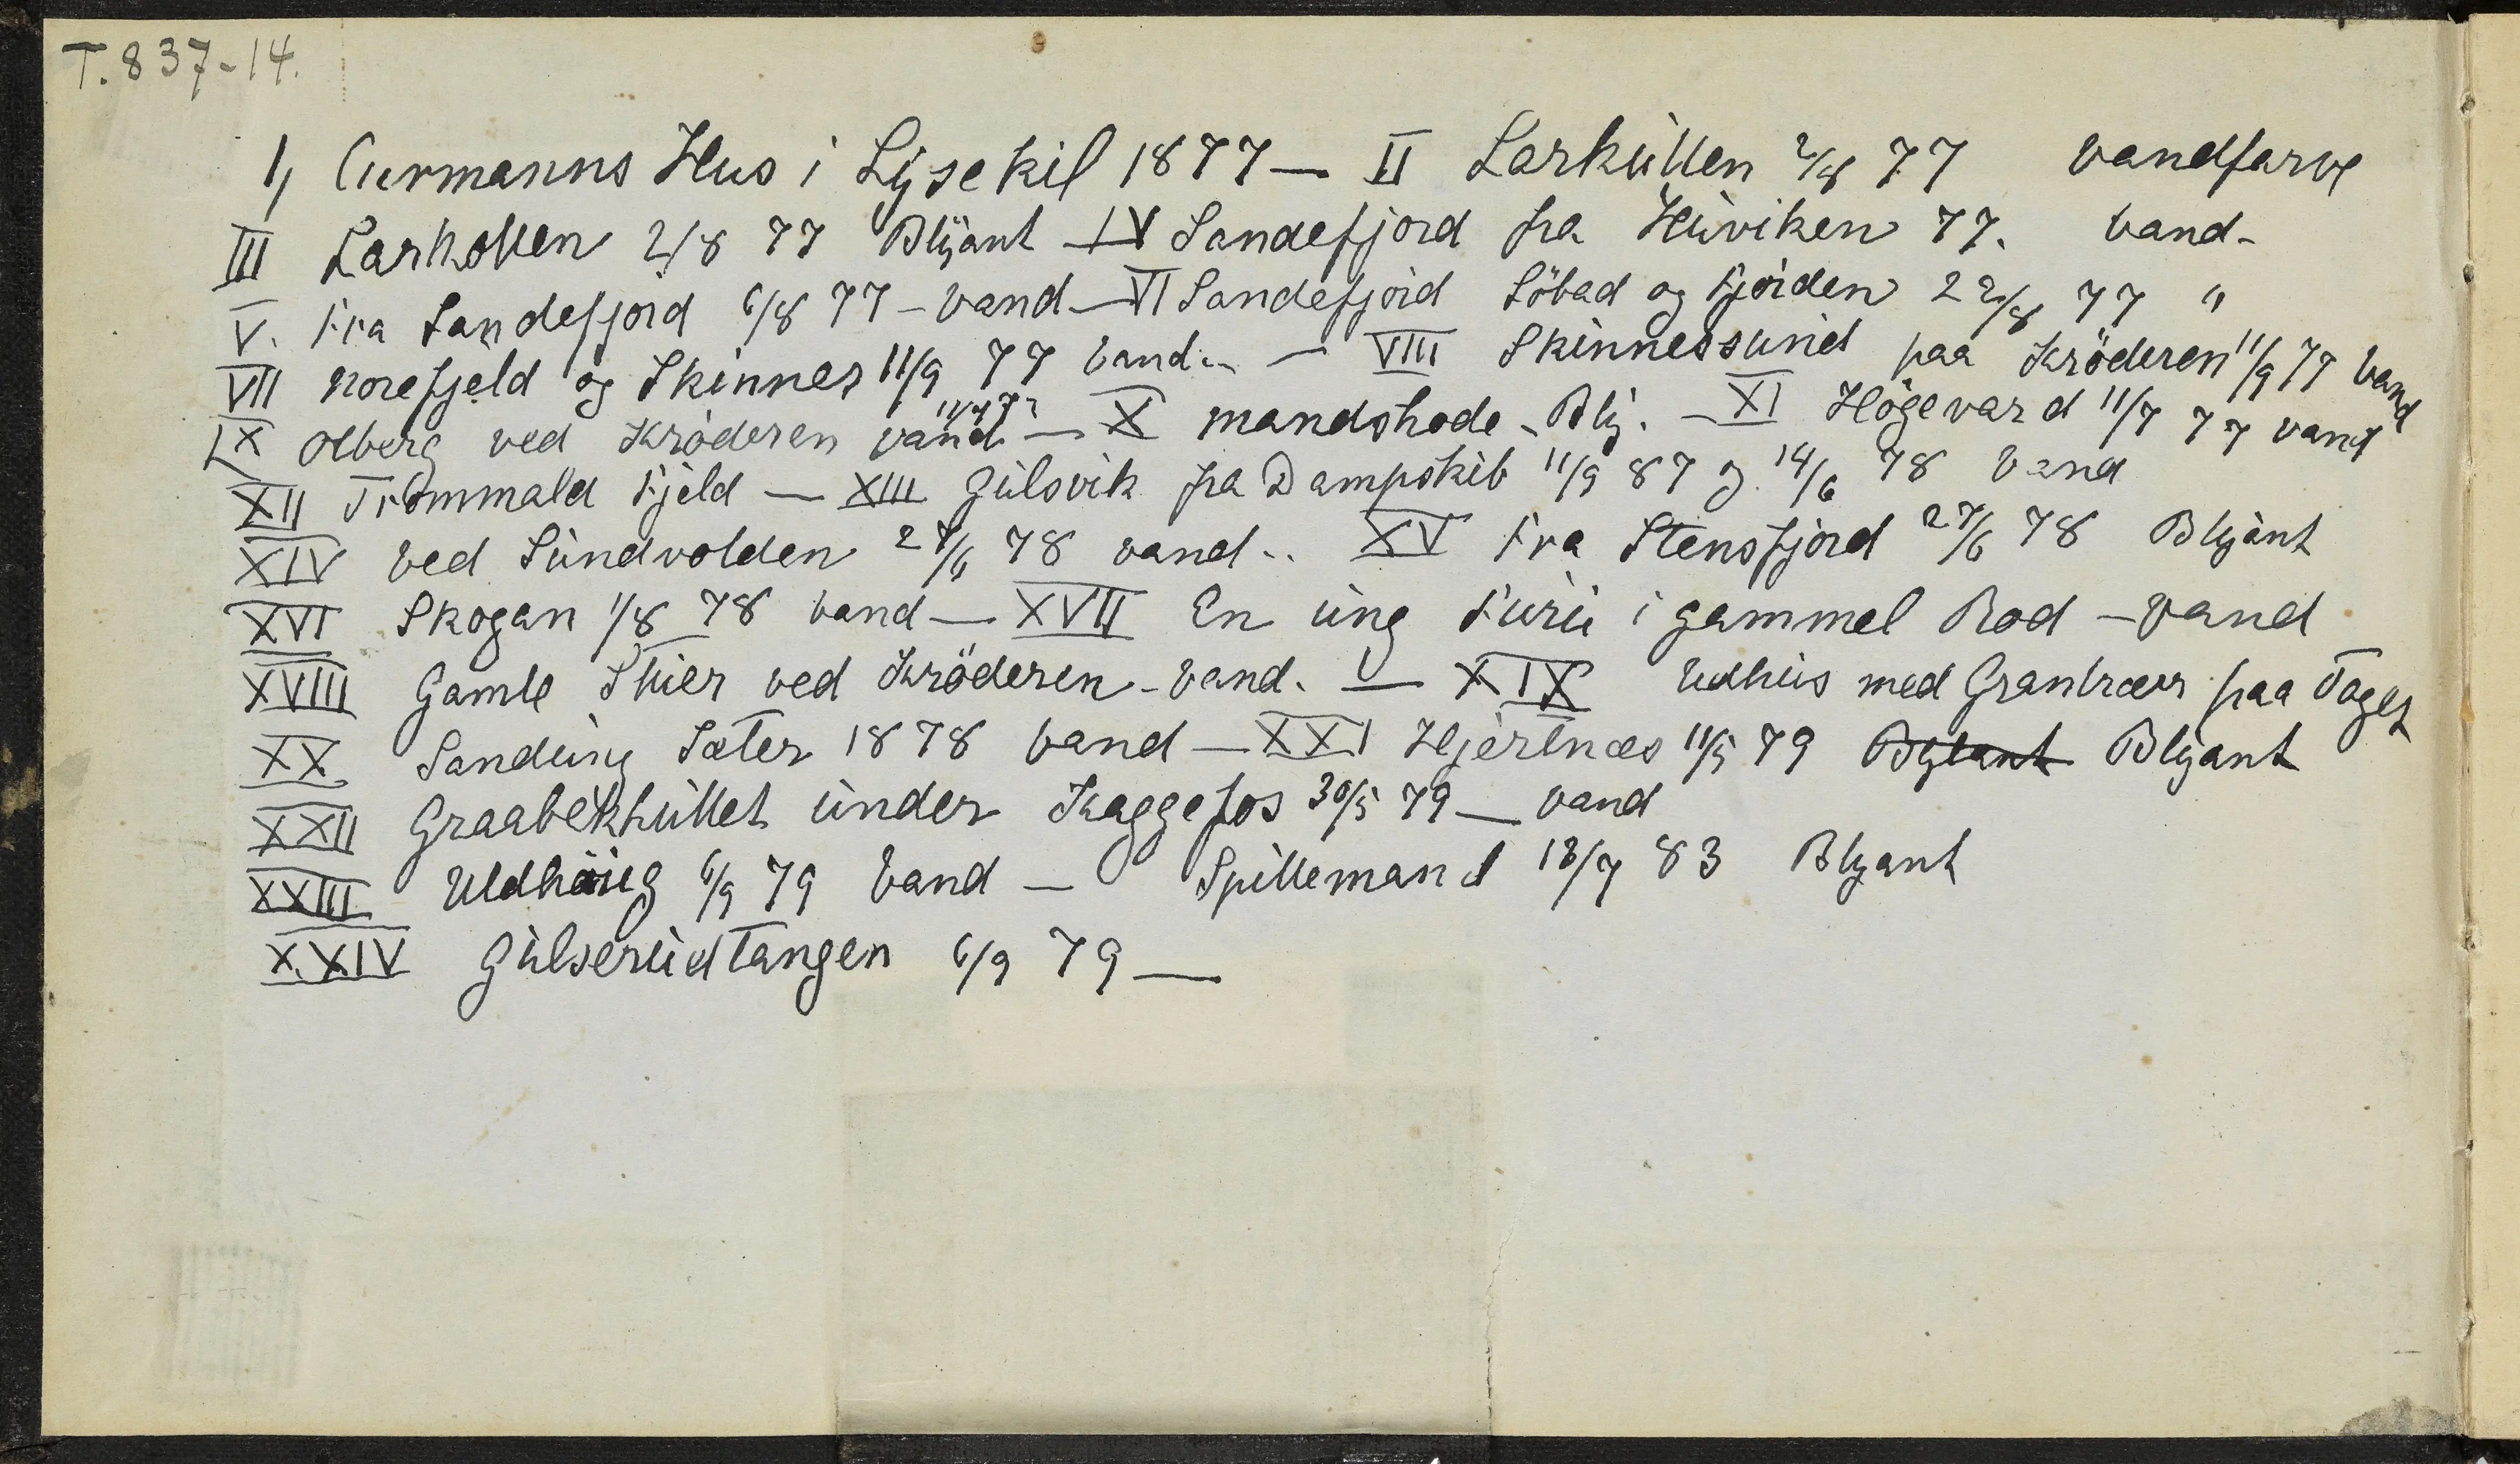 T. 837-14.
1, Curmanns Hus i Lysekil 1877 — II Larkullen 2/8 77 vandfarve
III Larkollen 2/8 77 Blyant — IV Sandefjord fra Huviken 77. vand-
V. Fra Sandefjord 6/8 77 - vand — VI Sandefjord Söbad og Fjorden 22/8 77 "
VII Norefjeld og Skinnes 11/9 77 vand.. — VIII Skinnessund paa Kröderen 11/9 77 vand
IX Olberg ved Kröderen vand 11/9 77 — X mandshode - Bly. — XI Högevard 11/7 77 vand
XII Trommald Fjeld — XIII Gulsvik fra Dampskib 11/9 87 og 14/6 78 Vand
XIV Ved Sundvolden 27/6 78 vand.. XV Fra Stensfjord 27/6 78 Blyant
XVI Skogan 1/8 78 vand — XVII En ung Furu i gammel Rod — vand
XVIII Gamle Skier ved Kröderen - vand. — XIX Udhus med Grantrær paa Taget
XX Sandung Sæter 1878 vand — XXI Hjertnæs 11/5 79 Bylant Blyant
XXII Graabekhullet under Kaggefos 30/5 79 — vand
XXIII Uldhaug 6/9 79 Vand — Spillemand 18/7 83 Blyant
XXIV Gulserudtangen 6/9 79 —